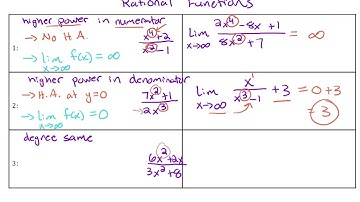 Rational Functions
1:
higher power in numerator
→ No H.A.
→ lim x→∞ f(x) = ∞
x^4+2 / x^2-1
lim x→∞ 2x^4-8x+1 / 8x^2+7 = ∞
2:
higher power in denominator
→ H.A. at y=0
→ lim x→∞ f(x) = 0
7x^2+1 / 2x^3
lim x→∞ x^1 / x^3-1 + 3 = 0+3
= 3
3:
degree same
6x^2+2x / 3x^2+8